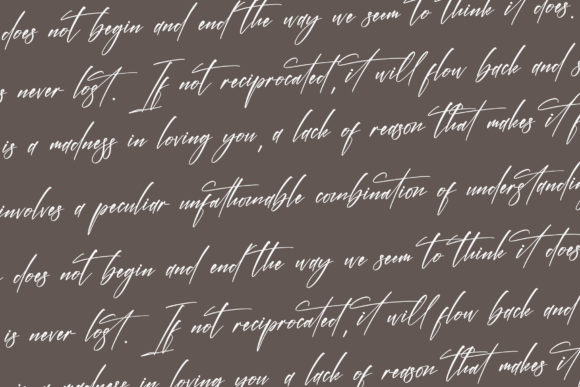 does not begin and end the way we seem to think it does.
is never lost. If not reciprocated, it will flow back and
is a madness in loving you, a lack of reason that makes it
involves a peculiar unfathomable combination of understanding
does not begin and end the way we seem to think it does
is never lost. If not reciprocated, it will flow back and
is a madness in loving you, a lack of reason that makes it